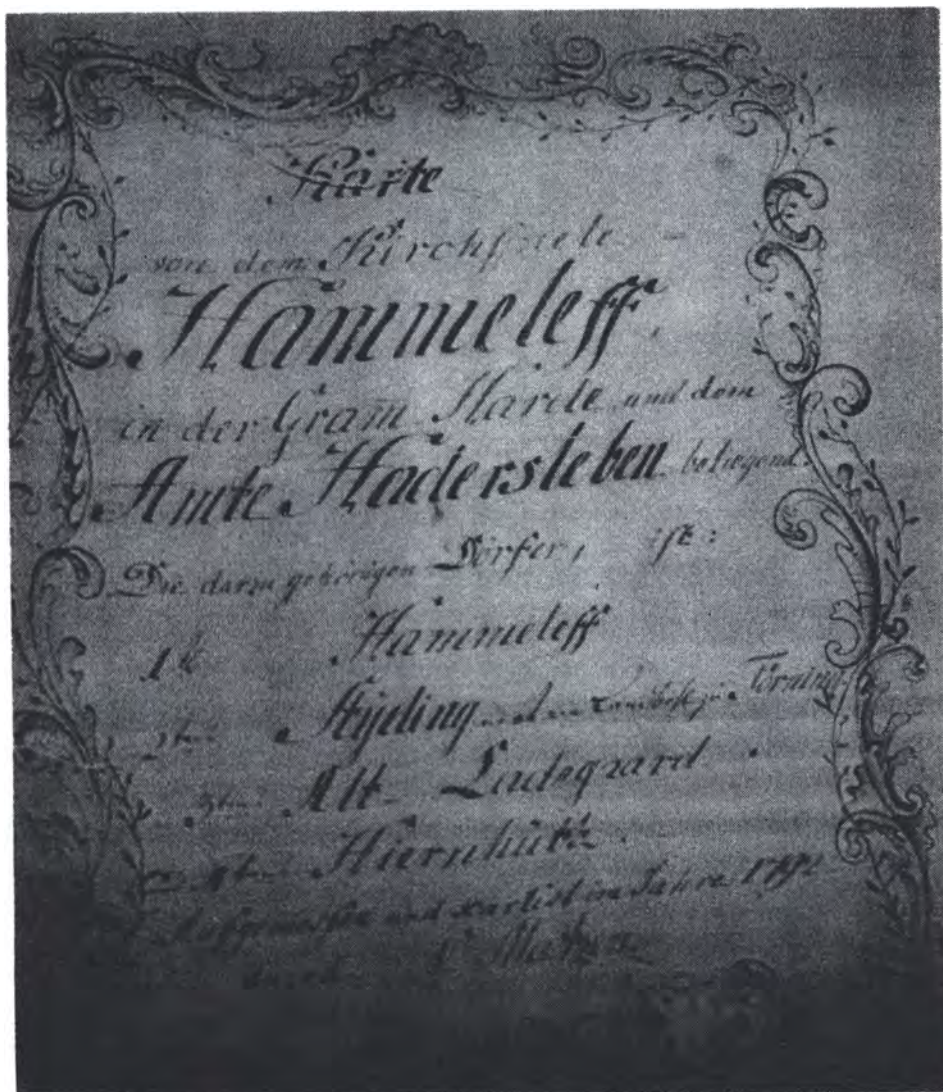 Karte
von dem Kirchspiele
Hammeleff
in der Gram Harde und dem
Amte Hadersleben belegend.
Die darzu gehörigen Dörfer, ist:
1te Hammeleff
2te Styding und zu Törning
3te Alt Ladegaard
4te Hiernhutt
Aufgemessen und Kartist im Jahre
durch